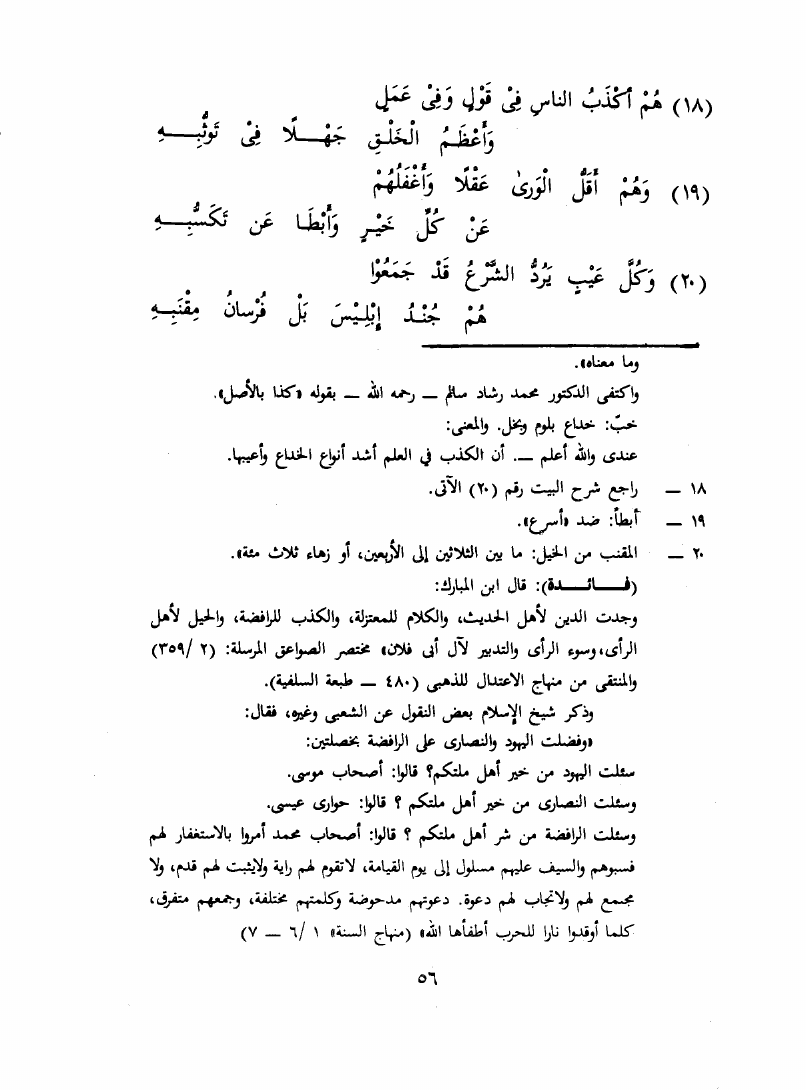 (١٨) هُمْ أَكْذَبُ الناسِ فِىْ قَوْلٍ وَفِىْ عَمَلٍ
وَأَعْظَمُ الْخَلْقِ جَهْلًا فِىْ تَوَثُّبِهِ
(١٩) وَهُمْ أَقَلُّ الْوَرىٰ عَقْلًا وَأَغْفَلُهُمْ
عَنْ كُلِّ خَيْرٍ وَأَبْطَا عَن تَكَسُّبِهِ
(٢٠) وَكُلَّ عَيْبٍ يَرُدُّ الشَّرْعُ قَدْ جَمَعُوْا
هُمْ جُنْدُ إِبْلِيْسَ بَلْ فُرْسَانُ مِقْنَبِهِ
وما معناه».
واكتفى الدكتور محمد رشاد سالم — رحمه الله — بقوله «كذا بالأصل».
خبّ: خداع بلوم وبخل. والمعنى:
عندى والله أعلم —. أن الكذب فى العلم أشد أنواع الخداع وأعيبها.
١٨ — راجع شرح البيت رقم (٢٠) الآتى.
١٩ — أبطأ: ضد «أسرع».
٢٠ — المقنب من الخيل: ما بين الثلاثين إلى الأربعين، أو زهاء ثلاث مئة».
(فــائــدة): قال ابن المبارك:
وجدت الدين لأهل الحديث، والكلام للمعتزلة، والكذب للرافضة، والحيل لأهل
الرأى، وسوء الرأى والتدبير لآل أبى فلان» مختصر الصواعق المرسلة: (٢ /٣٥٩)
والمنتقى من منهاج الاعتدال للذهبى (٤٨٠ — طبعة السلفية).
وذكر شيخ الإسلام بعض النقول عن الشعبى وغيره، فقال:
«وفضلت اليهود والنصارى على الرافضة بخصلتين:
سئلت اليهود من خير أهل ملتكم؟ قالوا: أصحاب موسى.
وسئلت النصارى من خير أهل ملتكم ؟ قالوا: حوارى عيسى.
وسئلت الرافضة من شر أهل ملتكم ؟ قالوا: أصحاب محمد أمروا بالاستغفار لهم
فسبوهم والسيف عليهم مسلول إلى يوم القيامة، لاتقوم لهم راية ولايثبت لهم قدم، ولا
مجمع لهم ولاتجاب لهم دعوة. دعوتهم مدحوضة وكلمتهم مختلفة، وجمعهم متفرق،
كلما أوقدوا نارا للحرب أطفأها الله» (منهاج السنة» ١ /٦ — ٧)
٥٦